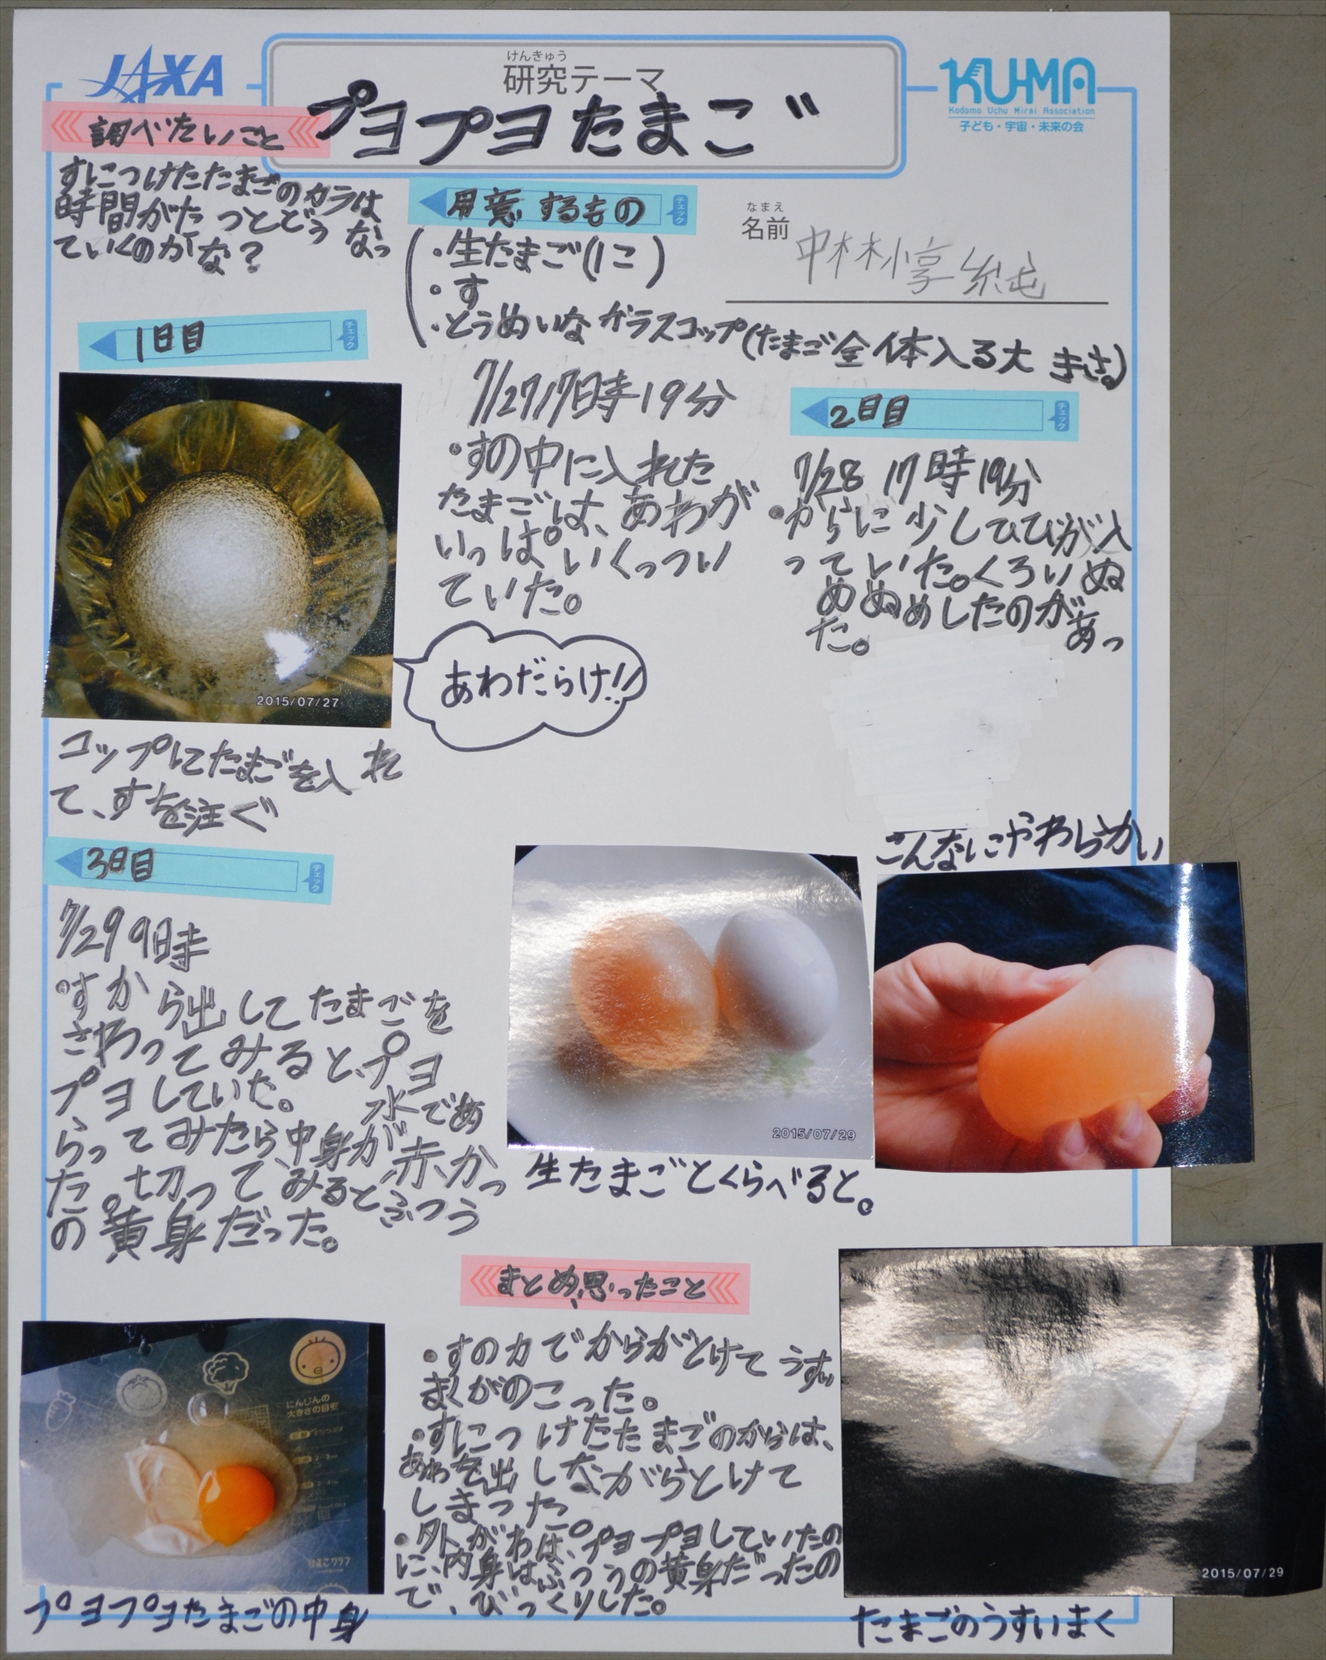 JAXA
けんきゅう
研究テーマ
プヨプヨたまご
KU-MA
Kodomo Uchu Mirai Association
子ども・宇宙・未来の会
調べたいこと
すにつけたたまごのカラは
時間がたつとどうなっ
ていくのかな?
用意するもの
チェック
・生たまご(1こ)
・す
・とうめいなガラスコップ(たまご全体入る大きさ)
なまえ
名前
1日目
チェック
7/27 17時19分
・すの中に入れた
たまごは、あわが
いっぱいくっつい
ていた。
2015/07/27
あわだらけ!!
コップにたまごを入れ
て、すを注ぐ
2日目
チェック
7/28 17時19分
・からに少しひびが入
っていた。くろいぬ
めぬめしたのがあっ
た。
3日目
チェック
7/29 9時
・すから出してたまごを
さわってみると、プヨ
プヨしていた。水であ
らってみたら中身が赤かっ
た。切ってみるとふつう
の黄身だった。
2015/07/29
生たまごとくらべると。
こんなにやわらかい
にんじんの
大きさの目安
プヨプヨたまごの中身
まとめ、思ったこと
・すの力でからがとけてうすい
まくがのこった。
・すにつけたたまごのからは、
あわを出しながらとけて
しまった。
・外がわは、プヨプヨしていたの
に、内身はふつうの黄身だったの
で、びっくりした。
2015/07/29
たまごのうすいまく